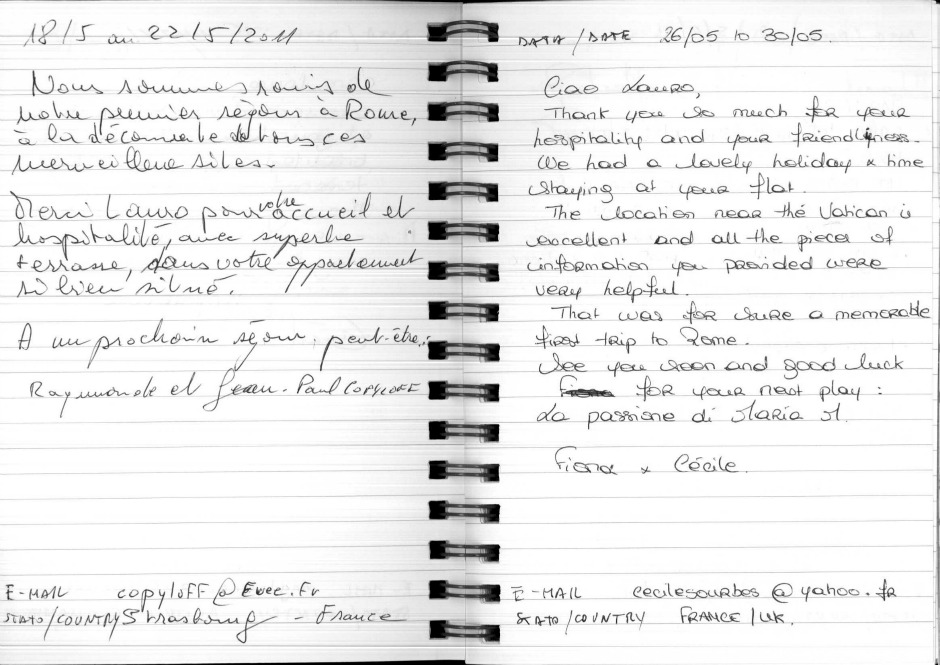 18/5 au 22/5/2011
Nous sommes ravis de
notre premier séjour à Rome,
à la découverte de tous ces
merveilleux sites.
Merci Lauro pour votre accueil et
hospitalité, avec superbe
terrasse, dans votre appartement
si bien situé.
A un prochain séjour, peut-être,.
Raymonde et Jean-Paul COPYLOFF
E-MAIL copyloff@
STATO/COUNTRY Strasbourg - France
DATA/DATE 26/05 to 30/05.
Ciao Lauro,
Thank you so much for your
hospitality and your friendliness.
We had a lovely holiday & time
staying at your flat.
The location near the Vatican is
excellent and all the pieces of
information you provided were
very helpful.
That was for sure a memorable
first trip to Rome.
See you soon and good luck
for your next play :
La passione di Maria M.
Fiona & Cécile.
E-MAIL cecilesourbes@yahoo.fr
STATO/COUNTRY FRANCE/UK.